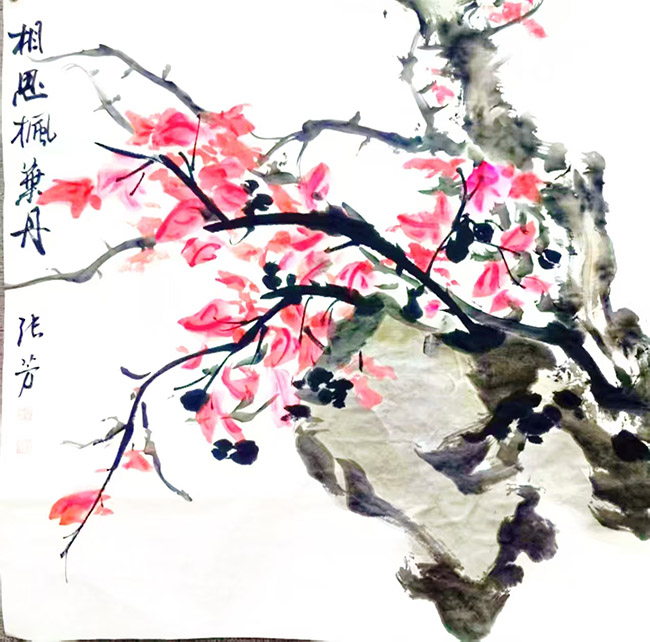 相思枫叶丹
张芳